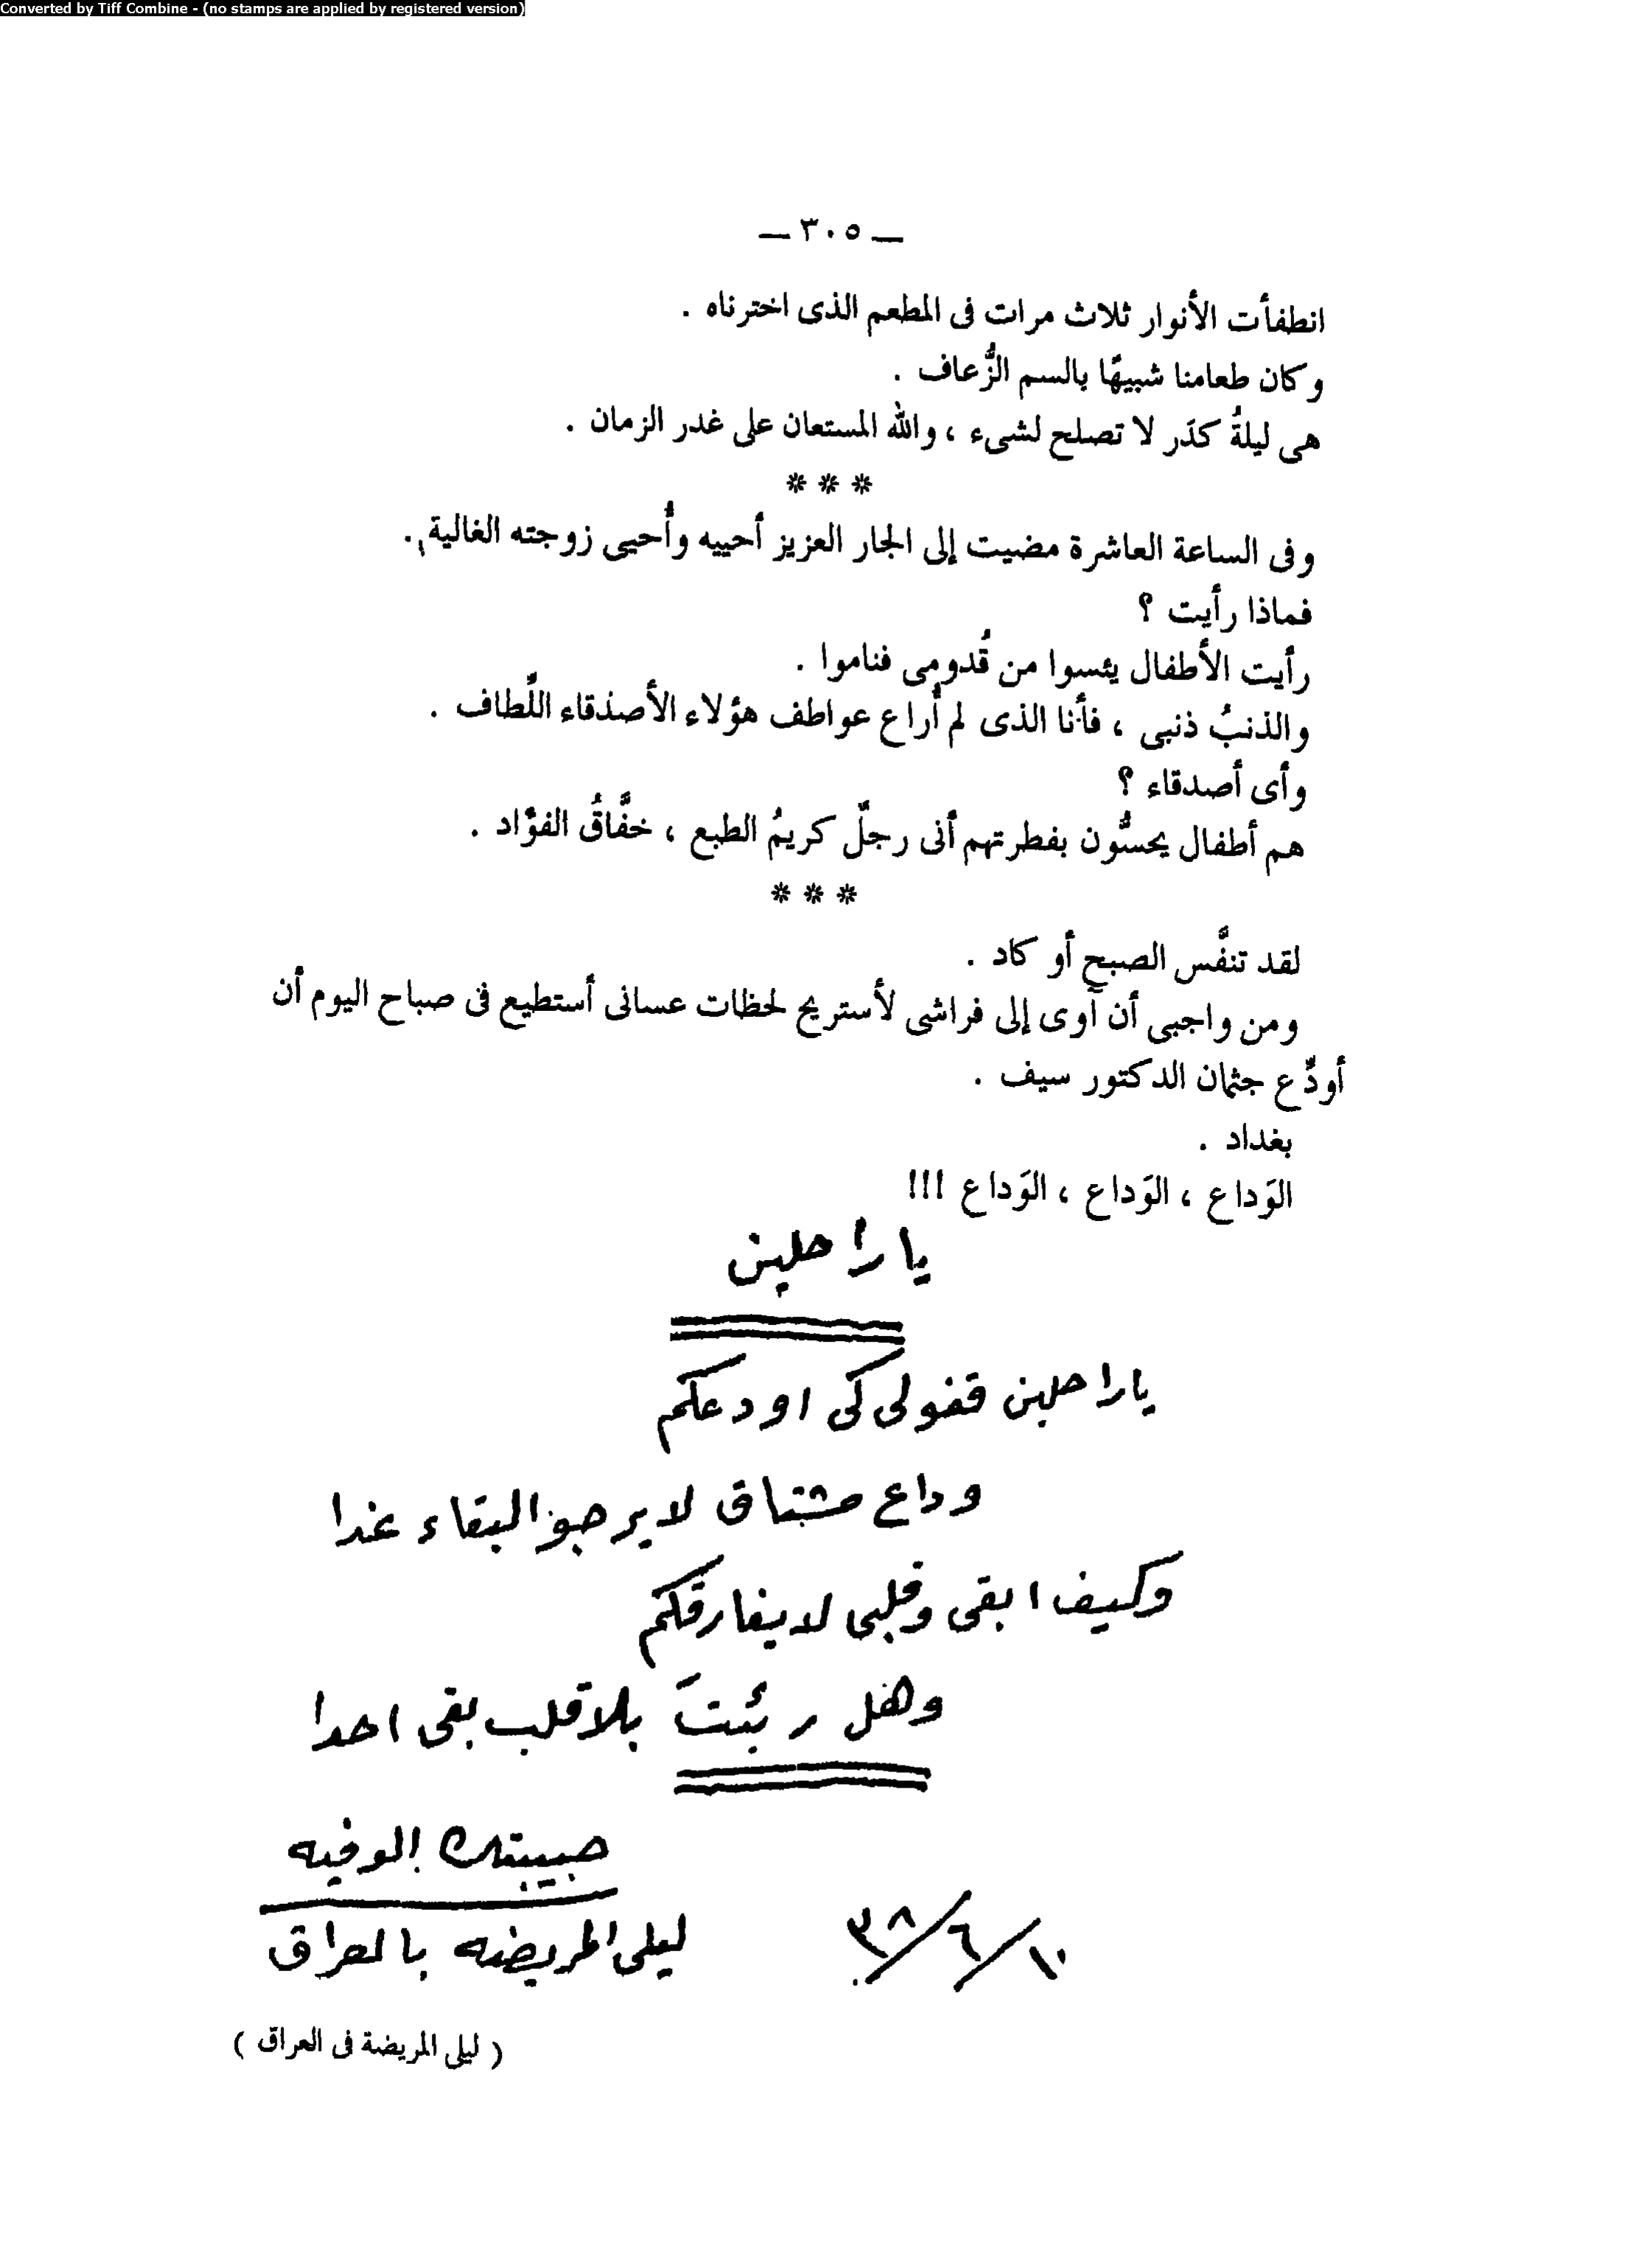 Converted by Tiff Combine - (no stamps are applied by registered version)
— ٣٠٥ —
انطفأت الأنوار ثلاث مرات فى المطعم الذى اخترناه .
وكان طعامنا شبيهًا بالسم الزُّعاف .
هى ليلةُ كدَر لا تصلح لشىء ، والله المستعان على غدر الزمان .
* * *
وفى الساعة العاشرة مضيت إلى الجار العزيز أحييه وأُحيى زوجته الغالية .
فماذا رأيت ؟
رأيت الأطفال يئسوا من قُدومى فناموا .
والذنبُ ذنبى ، فأنا الذى لم أُراع عواطف هؤلاء الأصذقاء اللِّطاف .
وأى أصدقاء ؟
هم أطفال يحسُّون بفطرتهم أنى رجلٌ كريمُ الطبع ، خفَّاقُ الفؤاد .
* * *
لقد تنفَّس الصبح أو كاد .
ومن واجبى أن آوى إلى فراشى لأستريح لحظات عسانى أستطيع فى صباح اليوم أن
أودِّع جثمان الدكتور سيف .
بغداد .
الوَداع ، الوَداع ، الوَداع !!!
يا راحلين
يا راحلين قفو لى كى اودعكم
وداع مشتاق لا يرجو البقاء غدا
وكيف ابقى وقلبى لا يفارقكم
وهل رئيتَ بلا قلب بقى احدا
حبيبتك الوفيه
ليلى المريضه بالعراق
١٠/٦/٣٨
( ليلى المريضة فى العراق )